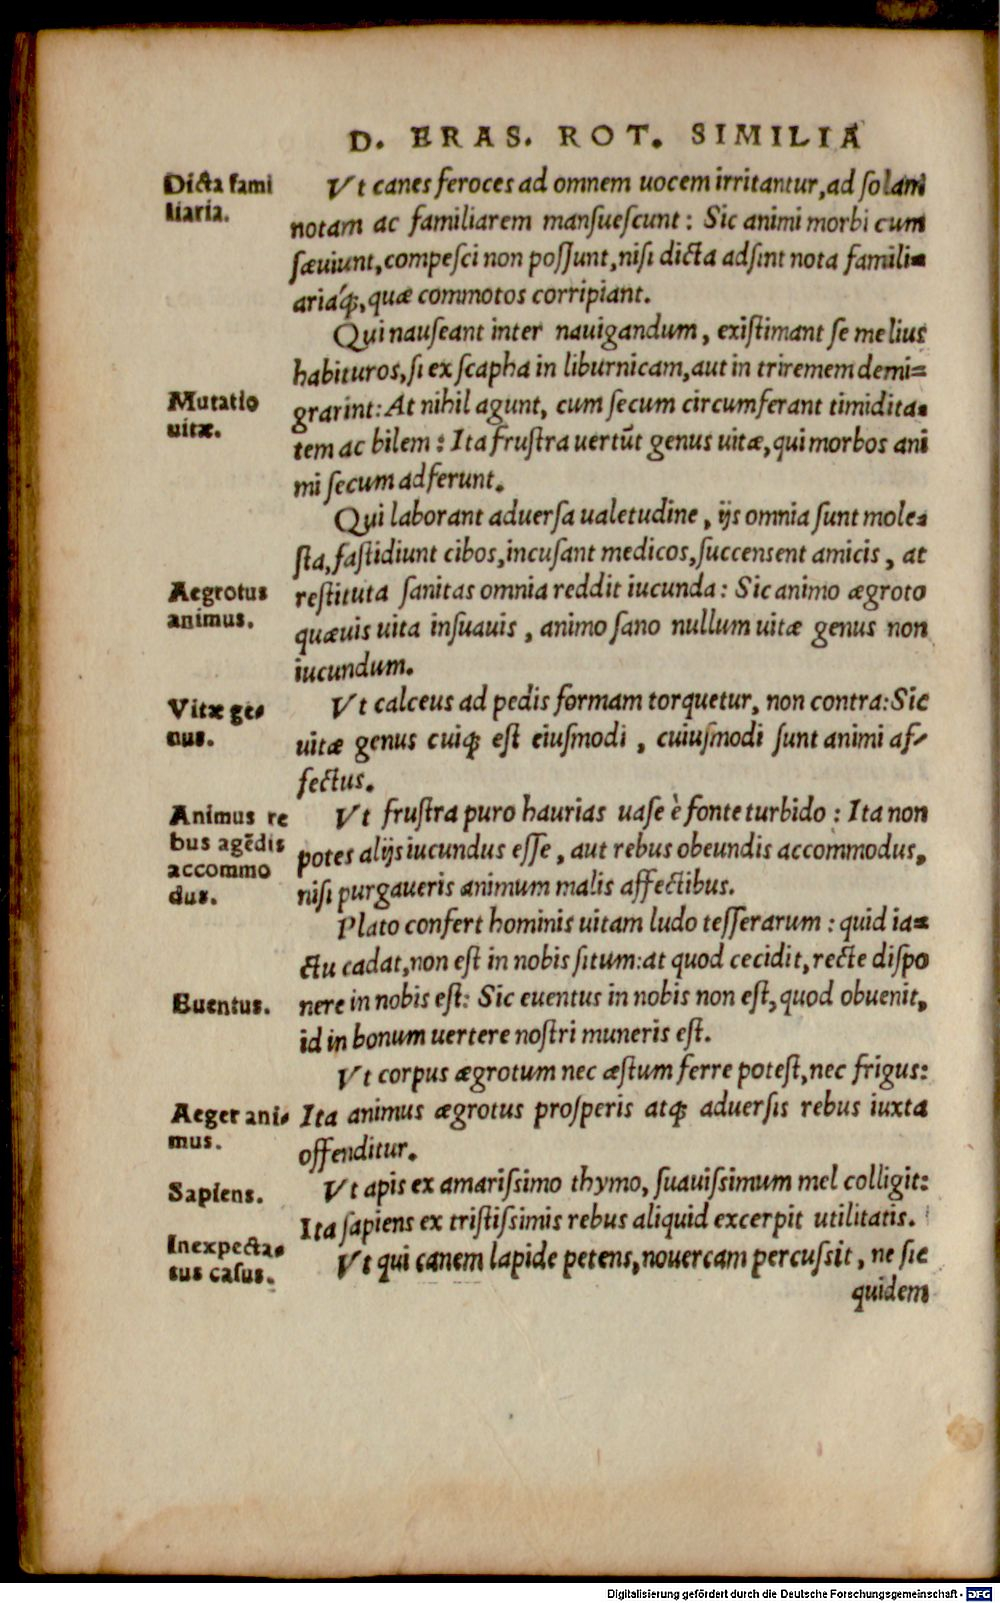 D. ERAS. ROT. SIMILIA
Dicta fami
liaria.
Vt canes feroces ad omnem uocem irritantur, ad solam
notam ac familiarem mansuescunt: Sic animi morbi cum
sæuiunt, compesci non possunt, nisi dicta adsint nota famili-
ariáq;, quæ commotos corripiant.
Qui nauseant inter nauigandum, existimant se melius
habituros, si ex scapha in liburnicam, aut in triremem demi-
Mutatio
uitæ.
grarint: At nihil agunt, cum secum circumferant timidita-
tem ac bilem: Ita frustra uertūt genus uitæ, qui morbos ani
mi secum adferunt.
Qui laborant aduersa ualetudine, ijs omnia sunt mole-
sta, fastidiunt cibos, incusant medicos, succensent amicis, at
Aegrotus
animus.
restituta sanitas omnia reddit iucunda: Sic animo ægroto
quæuis uita insuauis, animo sano nullum uitæ genus non
iucundum.
Vitæ ge-
nus.
Vt calceus ad pedis formam torquetur, non contra: Sic
uitæ genus cuiq; est eiusmodi, cuiusmodi sunt animi af-
fectus.
Animus re
bus agēdis
accommo
dus.
Vt frustra puro haurias uase è fonte turbido: Ita non
potes alijs iucundus esse, aut rebus obeundis accommodus,
nisi purgaueris animum malis affectibus.
Plato confert hominis uitam ludo tesserarum: quid ia-
ctu cadat, non est in nobis situm: at quod cecidit, recte dispo
Euentus.
nere in nobis est: Sic euentus in nobis non est, quod obuenit,
id in bonum uertere nostri muneris est.
Vt corpus ægrotum nec æstum ferre potest, nec frigus:
Aeger ani-
mus.
Ita animus ægrotus prosperis atq; aduersis rebus iuxta
offenditur.
Sapiens.
Vt apis ex amarissimo thymo, suauissimum mel colligit:
Ita sapiens ex tristissimis rebus aliquid excerpit utilitatis.
Inexpecta-
tus casus.
Vt qui canem lapide petens, nouercam percussit, ne sic
quidem
Digitalisierung gefördert durch die Deutsche Forschungsgemeinschaft - DFG